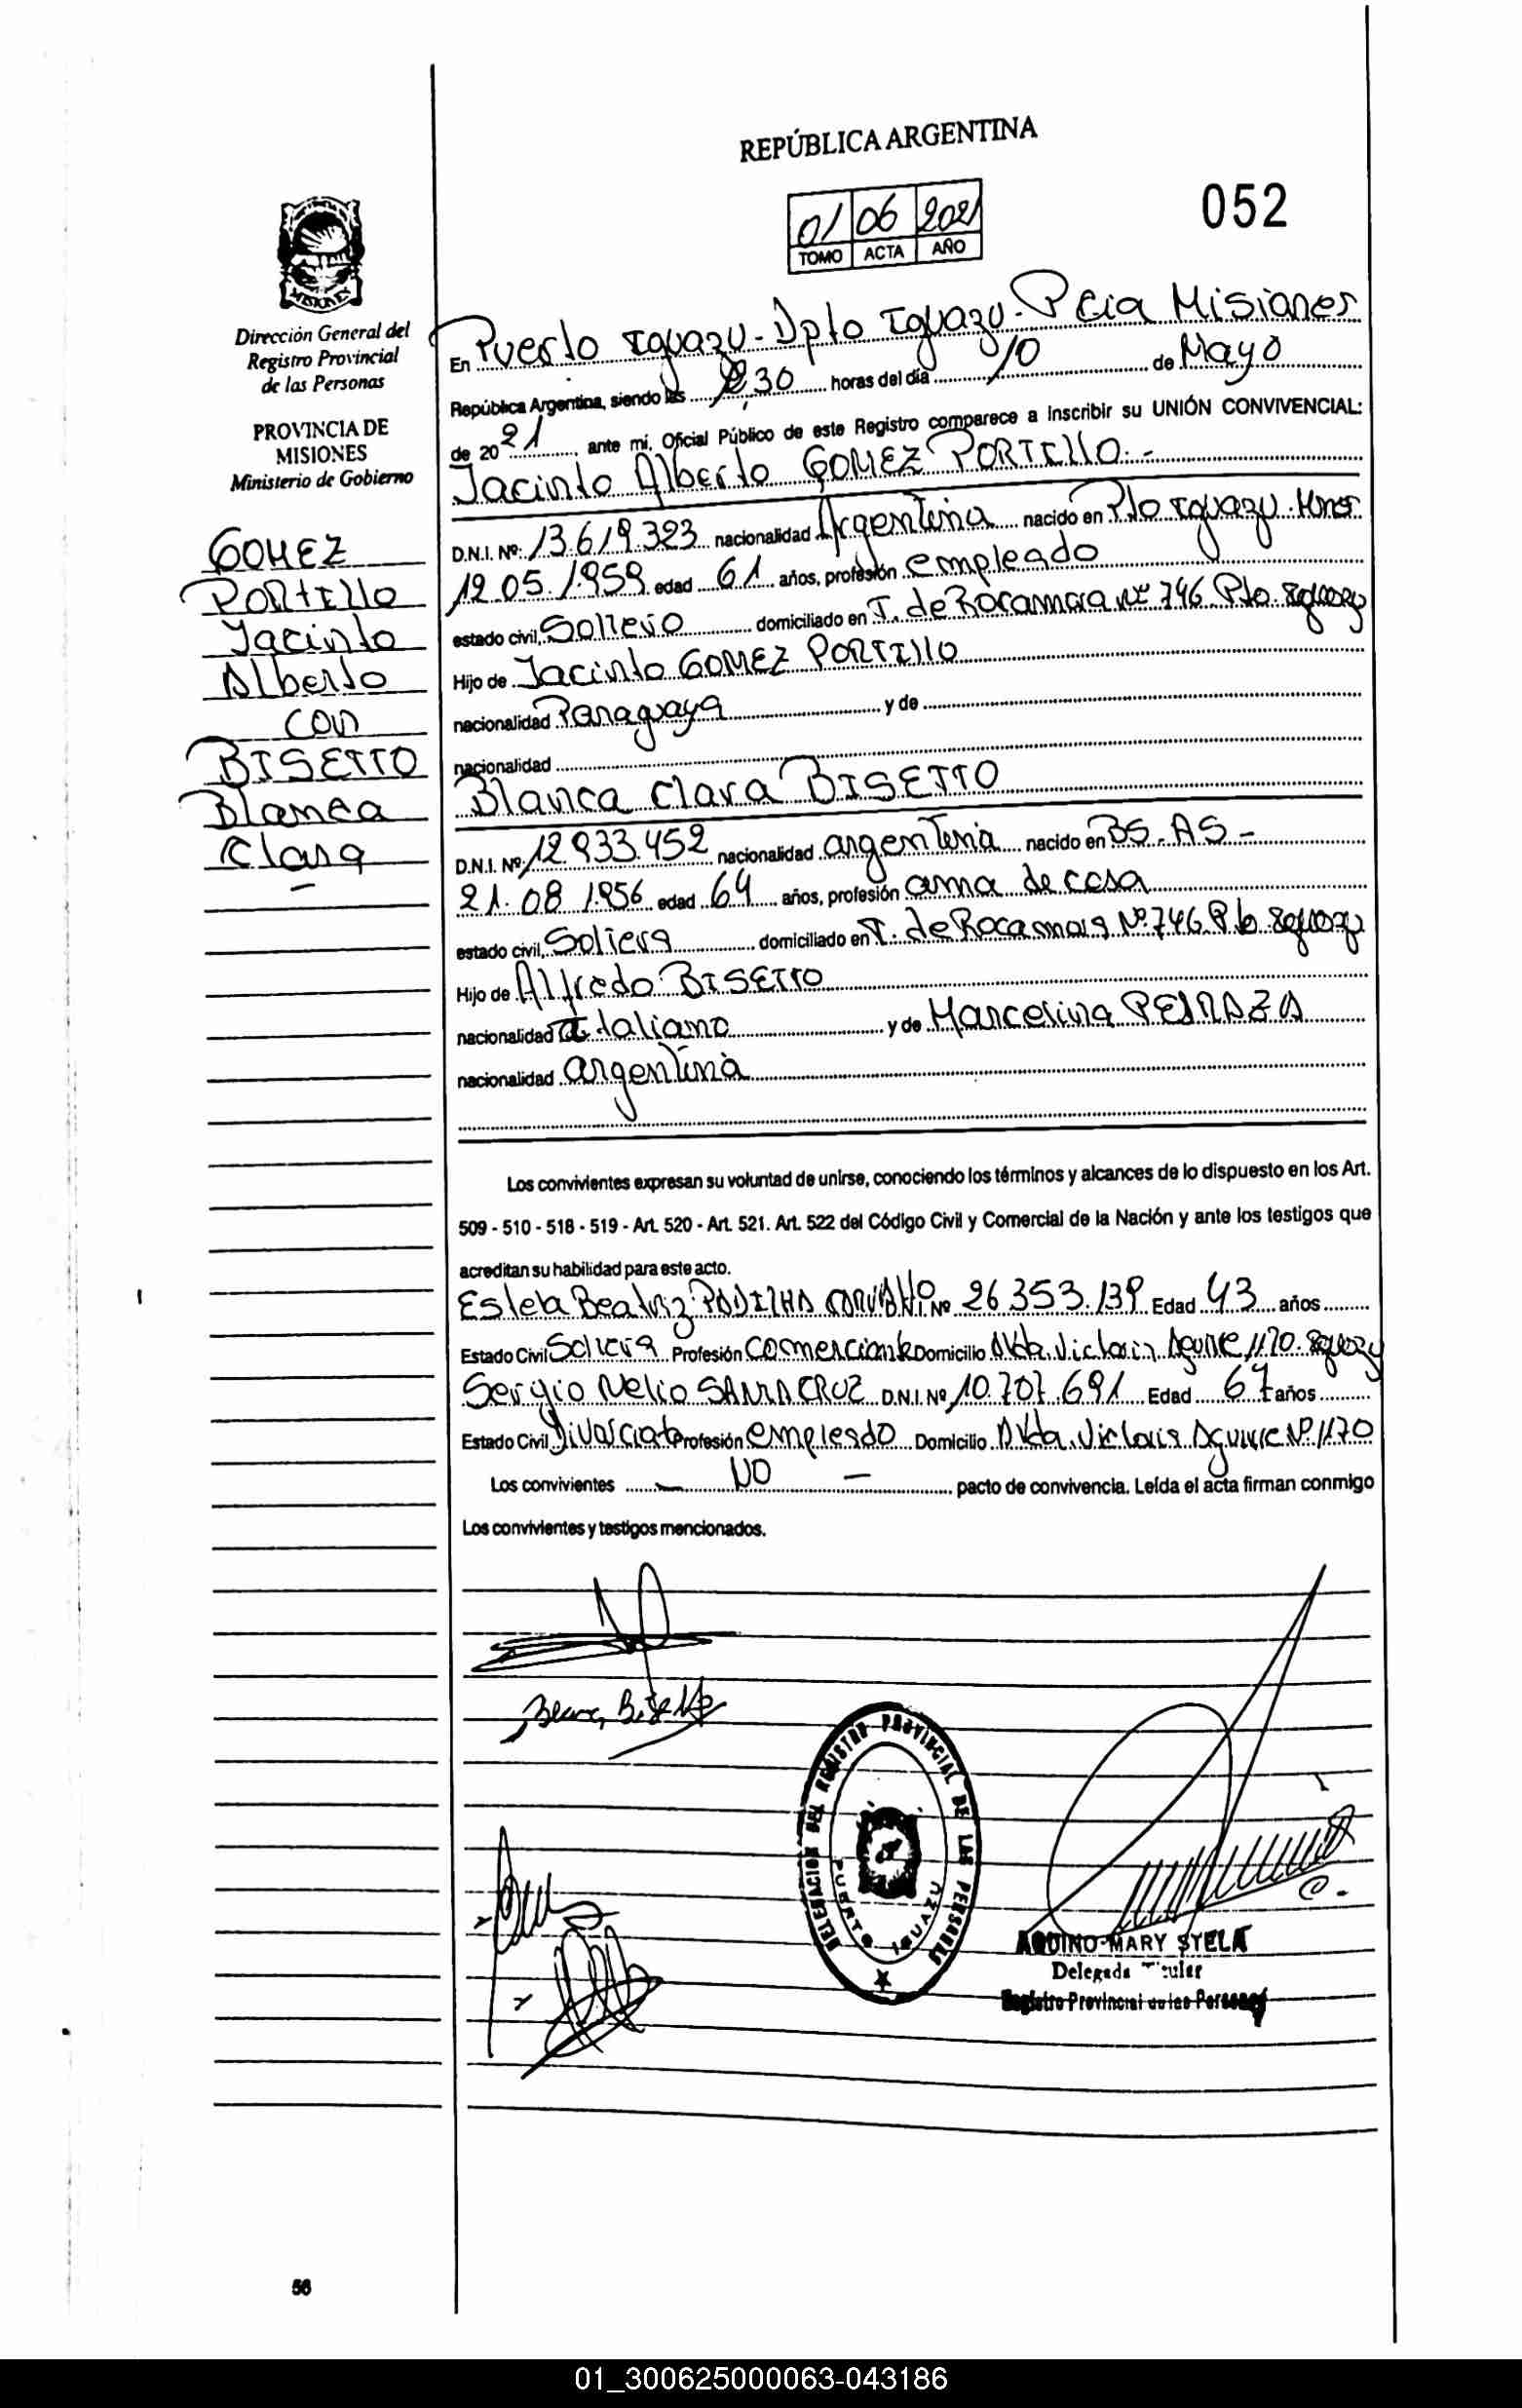 REPÚBLICA ARGENTINA
052
01 06 2021
TOMO ACTA AÑO
MISIONES
Dirección General del
Registro Provincial
de las Personas
PROVINCIA DE
MISIONES
Ministerio de Gobierno
GOMEZ
PORTILLO
Jacinto
Alberto
con
BISETTO
Blanca
Clara
En Puerto Iguazu - Dpto Iguazu - Pcia Misiones
República Argentina, siendo las 30 horas del día 10 de Mayo
de 2021 ante mí, Oficial Público de este Registro comparece a Inscribir su UNIÓN CONVIVENCIAL:
Jacinto Alberto GOMEZ PORTILLO.-
D.N.I. Nº: 13.619.323 nacionalidad Argentina nacido en Pto Iguazu Mnes
12.05.1959 edad 61 años, profesión empleado
estado civil, Soltero domiciliado en T. de Rocamora Nº 746 Pto. Iguazu
Hijo de Jacinto GOMEZ PORTILLO
nacionalidad Paraguaya y de
nacionalidad
Blanca Clara BISETTO
D.N.I. Nº: 12.933.452 nacionalidad argentina nacido en BS. AS -
21.08.1956 edad 64 años, profesión ama de casa
estado civil, Soltera domiciliado en T. de Rocamora Nº 746 Pto Iguazu
Hijo de Alfredo BISETTO
nacionalidad Italiano y de Marcelina PEDRAZA
nacionalidad argentina
Los convivientes expresan su voluntad de unirse, conociendo los términos y alcances de lo dispuesto en los Art.
509 - 510 - 518 - 519 - Art. 520 - Art. 521. Art. 522 del Código Civil y Comercial de la Nación y ante los testigos que
acreditan su habilidad para este acto.
Estela Beatriz PADILHA Nº 26.353.139 Edad 43 años
Estado Civil Soltera Profesión Comerciante Domicilio Avda. Victoria Aguirre 1170. Iguazu
Sergio Nelio SANTA CRUZ D.N.I. Nº 10.707.691 Edad 67 años
Estado Civil Divorciado Profesión empleado Domicilio Avda. Victoria Aguirre Nº 1170
Los convivientes NO - pacto de convivencia. Leída el acta firman conmigo
Los convivientes y testigos mencionados.
DELEGACION DEL REGISTRO PROVINCIAL DE LAS PERSONAS
PUERTO IGUAZU
AQUINO MARY STELA
Delegada Titular
Registro Provincial de las Personas
56
01_300625000063-043186